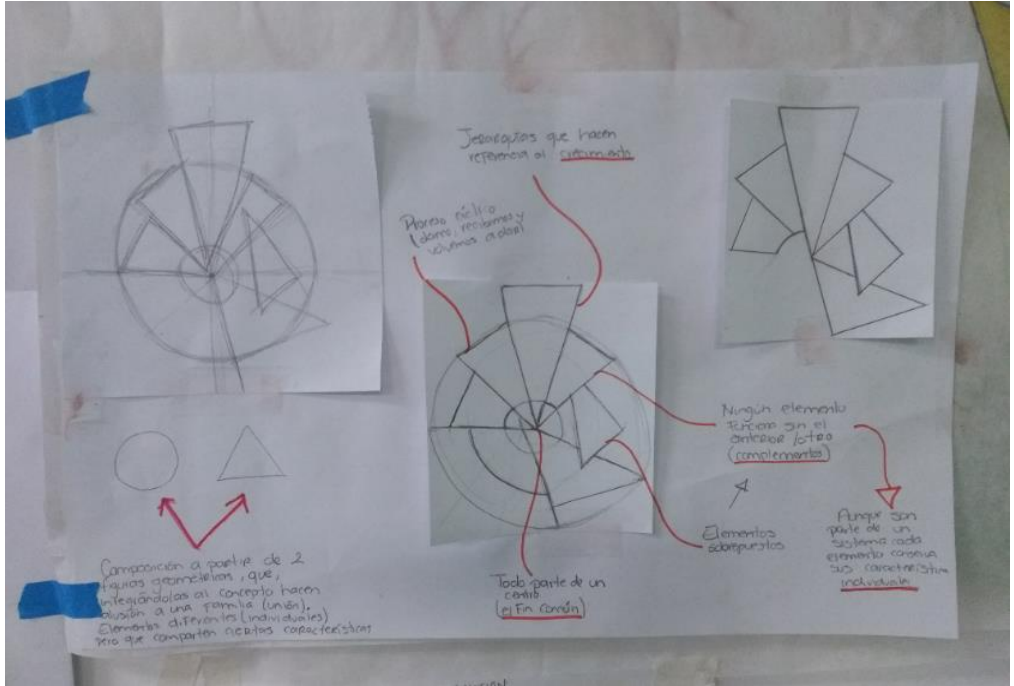 Jerarquías que hacen
referencia al crecimiento
Proceso cíclico
(damos, recibimos y
volvemos a dar)
Ningún elemento
funciona sin el
anterior / otro
(complementos)
Elementos
sobrepuestos
Aunque son
parte de un
sistema cada
elemento conserva
sus característica
individuale
Todo parte de un
centro
(el Fin Común)
Composición a partir de 2
figuras geométricas, que,
integrándolas al concepto hacen
alusión a una familia (unión).
Elementos diferentes (individuales)
pero que comparten ciertas características